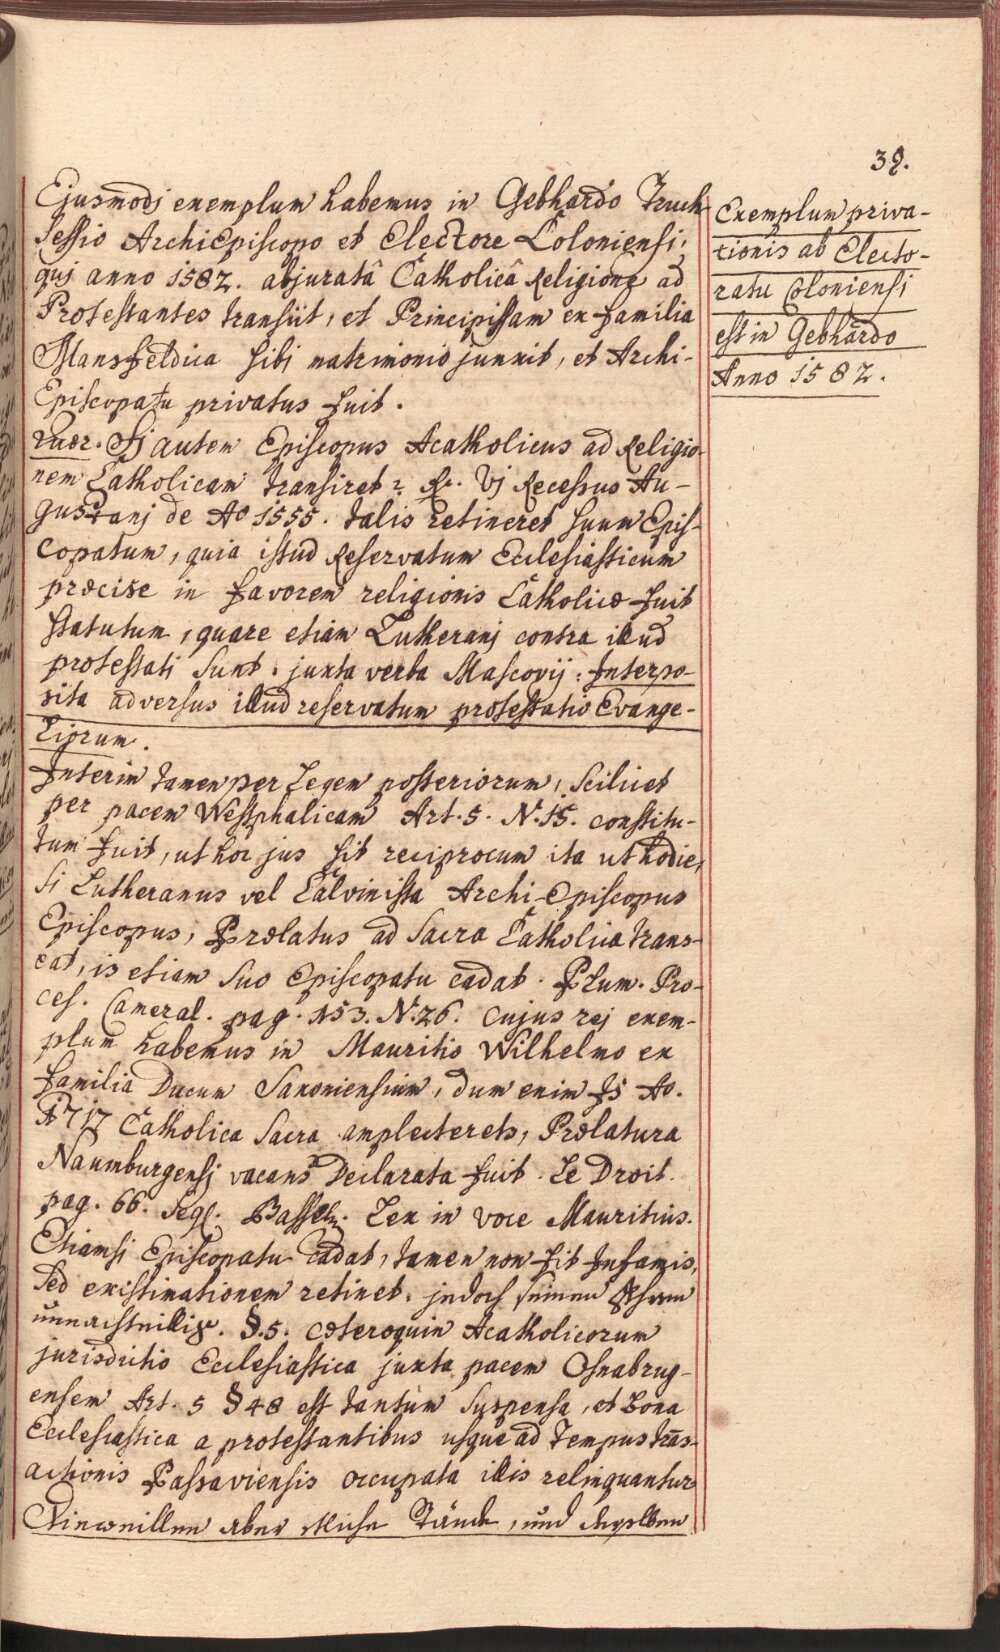 39.
Ejusmodj exemplum habemus in Gebhardo Truch
sessio ArchiEpiscopo et Electore Coloniensi,
quj anno 1582. abjuratâ Catholicâ Religione ad
Protestantes transiit, et Principissam ex familia
Mansfeldica sibi matrimonio junxit, et Archi-
Episcopatu privatus fuit.
Quær. Sj autem Episcopus Acatholicus ad Religio-
nem Catholicam transiret? R. Vj Recessus Au-
gustanj de Ao 1555. talis retineret suum Epis-
copatum, quia istud Reservatum Ecclesiasticum
præcise in favorem religionis Catholicæ fuit
statutum, quare etiam Lutheranj contra illud
protestati sunt. juxta verba Mascovij: Interpo-
sita adversus illud reservatum protestatio Evange-
licorum.
Interim tamen per Legem posteriorum, scilicet
per pacem Westphalicam Art. 5. N. 15. constitu-
tum fuit, ut hoc jus sit reciprocum ita ut hodie,
si Lutheranus vel Calvinista Archi-Episcopus
Episcopus, Prælatus ad Sacra Catholica trans-
eat, is etiam suo Episcopatu cadat. Plum. Pro-
ces. Cameral. pag. 153. N. 26. cujus rej exem-
plum habemus in Mauritio Wilhelmo ex
familia Ducum Saxoniensium, dum enim is Ao.
1717 Catholica Sacra amplecterets, Prælatura
Naumburgensj vacans Declarata fuit. Le Droit.
pag. 66. seq. Lex in voce Mauritius.
Etiamsi Episcopatu cadat, tamen non fit Infamis,
sed existimationem retinet. jedoch seinen Ehren
unnachtheilig. §. 5. cæteroquin Acatholicorum
jurisdictio Ecclesiastica juxta pacem Osnabrug-
ensem Art. 5 § 48 est tantum suspensa, et Bona
Ecclesiastica a protestantibus usque ad tempus trãs-
actionis Passaviensis occupata illis relinquantur
aber Stände, und derselben
Exemplum priva-
tionis ab Electo-
ratu Coloniensi
est in Gebhardo
Anno 1582.